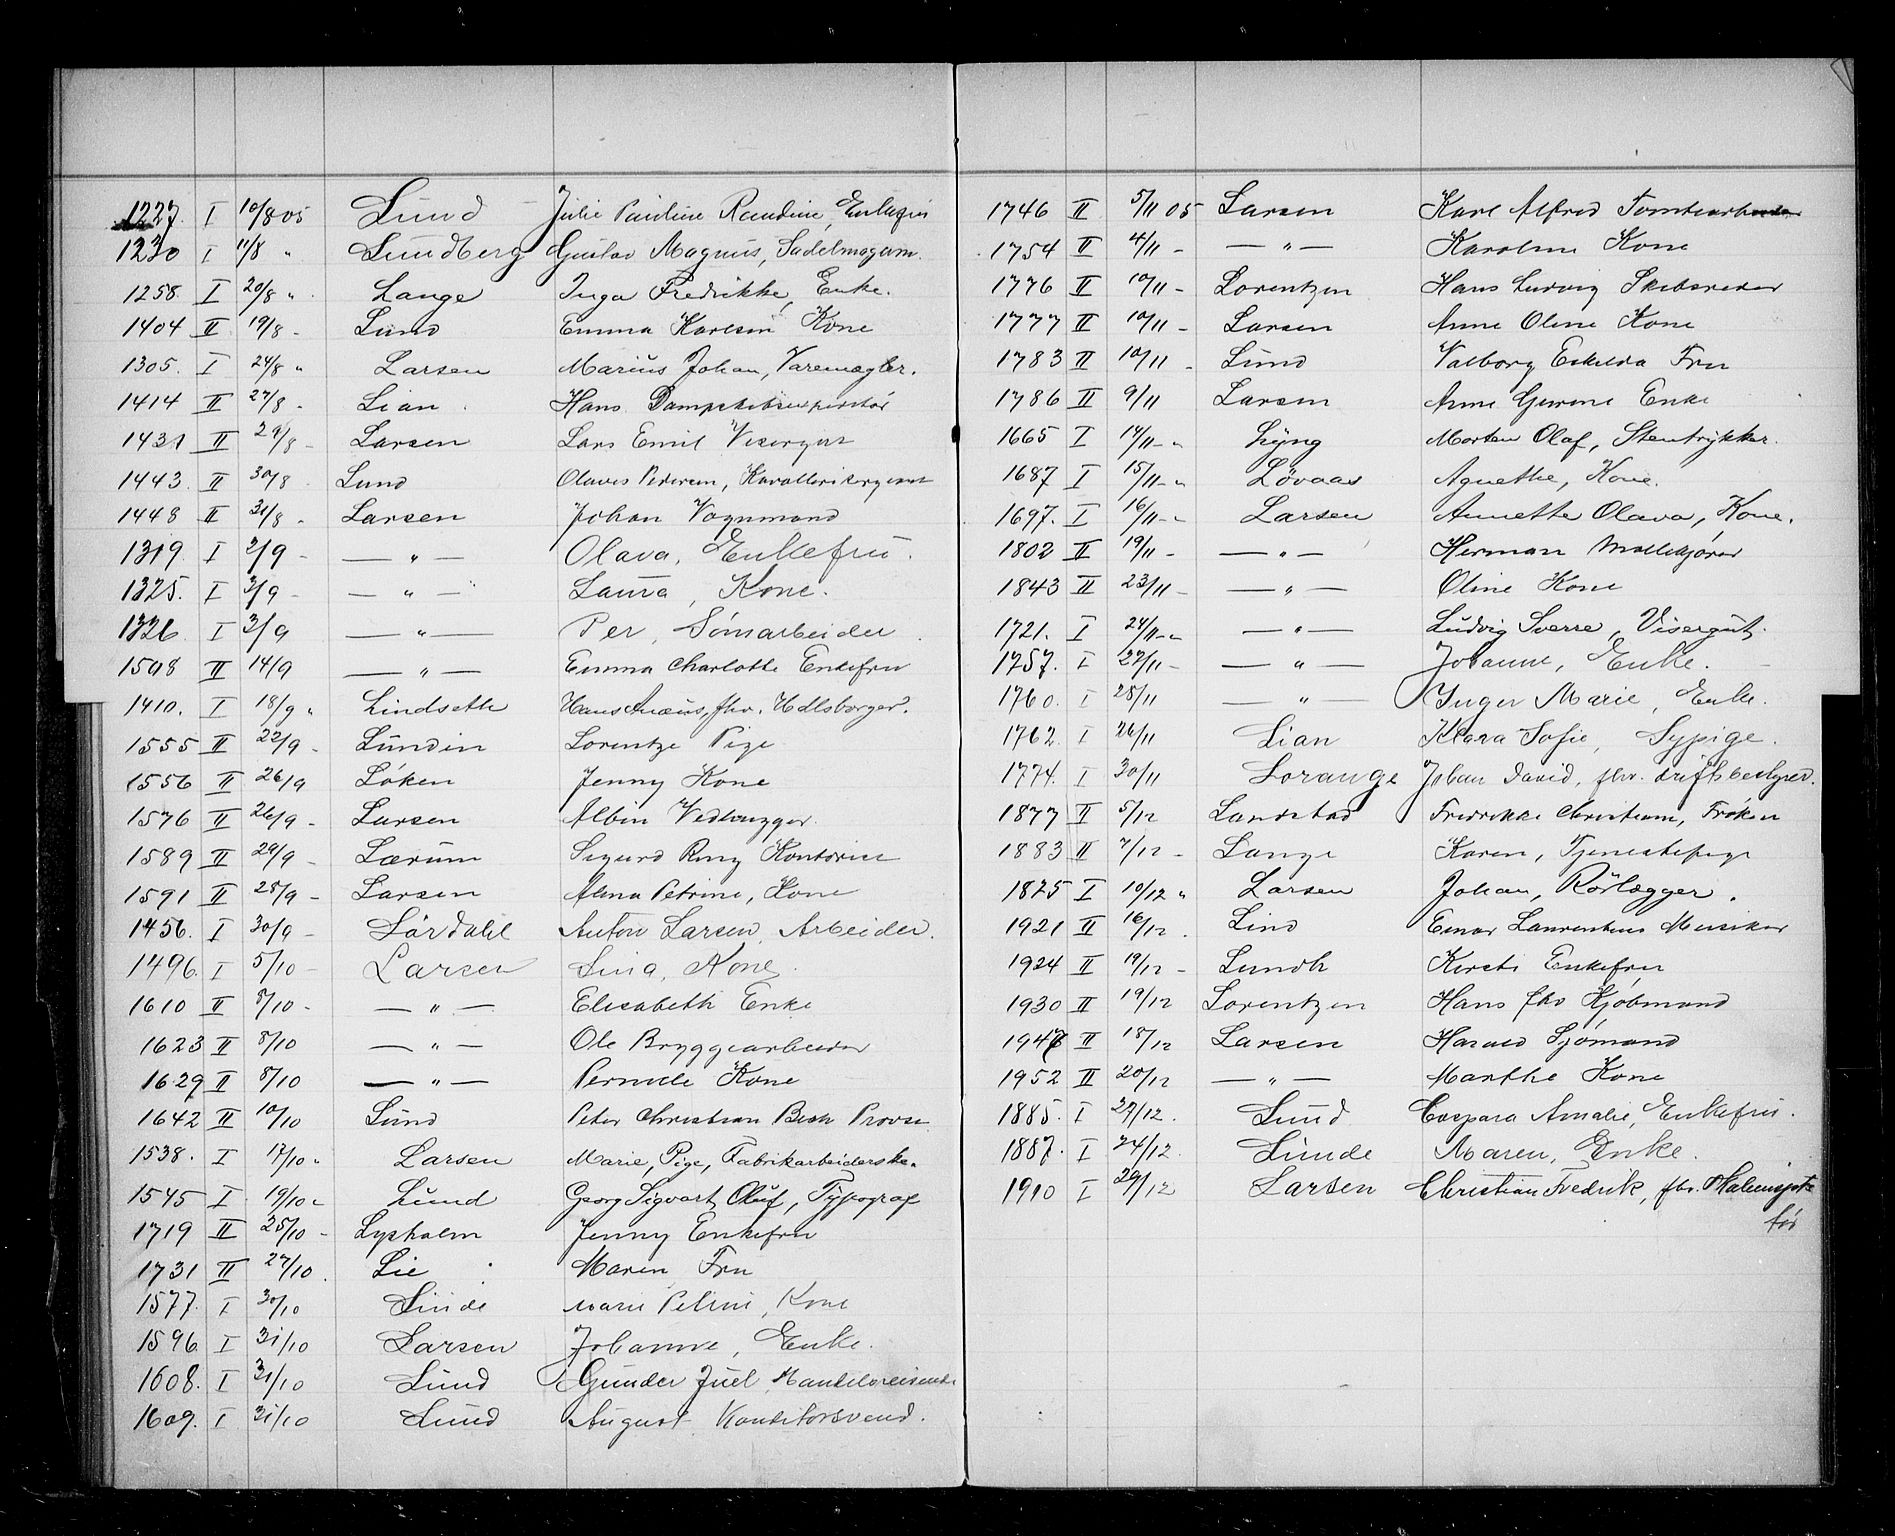 1227. I 10/8 05 Lund Julie Pauline Randine, Enkefru
1230 I 11/8 " Lundberg Gustav Magnus, Sadelmagerm.
1258. I 20/8 " Lange Inga Fredrikke, Enke.
1404 II 19/8 - Lund Emma Karlsen Kone
1305. I 24/8 " Larsen Marius Johan, Varemægler.
1414 II 27/8 - Lian Hans Dampskibsexpeditør
1431 II 29/8 - Larsen Lars Emil Visergut
1443 II 30/8 Lund Olaves Pedersen, Kavallerisergeant
1448 II 31/8 - Larsen Johan Vognmand
1319. I 2/9 - — " — Olava, Enkefru.
1325. I 3/9 - — " — Laura, Kone.
1326 I 3/9 — " — Per, Sømarbeider
1508 II 14/9 — " — Emma Charlotte Enkefru
1410. I 18/9 " Lindseth Hans fhv.
1555 II 22/9 - Lundin Lorentze Pige
1556 II 26/9 Løken Jenny Kone
1576 II 26/9 - Larsen Albin Vedhugger
1589 II 29/9 - Lærum Sigurd Kontorist
1591 II 28/9 - Larsen Alma Petrine, Kone
1456. I 30/9 - Lørdahl Anton Larsen, Arbeider.
1496. I 5/10 - Larsen Lina, Kone.
1610 II 8/10 - — " — Elisabeth Enke
1623 II 8/10 — " — Ole Bryggearbeider
1629 II 8/10 — " — Pernille Kone
1642 II 10/10 Lund Peter Christian Provst
1538. I 17/10 " Larsen Marie, Pige, Fabrikarbeiderske.
1545 I 19/10 " Lund Georg Sigvart Oluf, Typograf
1719 II 25/10 - Lysholm Jenny Enkefru
1731 II 27/10. Lie Maren Fru
1577. I 30/10 Linde Marie Kone
1596. I 31/10 Larsen Johanne, Enke.
1608. I 31/10 Lund Gunder Juel, Handelsreisende
1609. I 31/10 Lund August Konditorsvend.
1746 II 5/11 05 Larsen Karl Alfred Tomtearbeider
1754 II 4/11 - — " — Karoline Kone
1776 II 10/11 - Lorentzen Hans Ludvig Skibsreder
1777 II 10/11 - Larsen Anne Oline Kone
1783 II 10/11 - Lund Valborg Eskilda Fru
1786 II 9/11 Larsen Anne Gurine Enke
1665 I 14/11 - " Lyng Morten Olaf, Stentrykker.
1687 I 15/11 - " Løvaas Agnethe, Kone.
1697. I 16/11 - " Larsen Annette Olava, Kone.
1802 II 19/11 - — " — Herman Møllekjører
1843 II 23/11 - — " — Oline Kone
1721. I 24/11 - " — " — Ludvig Sverre, Visergut.
1757. I 27/11 - — " — Johanne, Enke.
1760. I 25/11 — " — Inger Marie, Enke.
1762. I 26/11 Lian Klara Sofie, Sypige.
1774. I 30/11 Lorange Johan David, fhv. driftsbestyrer.
1877 II 5/12 Landstad Fredrikke Christiane, Frøken
1883 II 7/12 - Lange Karen, Tjenestepige
1875 I 10/12 " Larsen Johan, Rørlægger.
1921 II 16/12. Lind Einar Laurentius Musiker
1924 II 19/12 - Lundh Kirsti Enkefru
1930 II 19/12 Lorentzen Hans fhv Kjøbmand
1947 II 18/12 Larsen Harald Sjømand
1952 II 20/12 — " — Marthe Kone
1885. I 27/12. Lund Caspara Amalie, Enkefru.
1887. I 24/12. Linde Maren, Enke.
1910 I 29/12 Larsen Christian Fredrik, fhv.